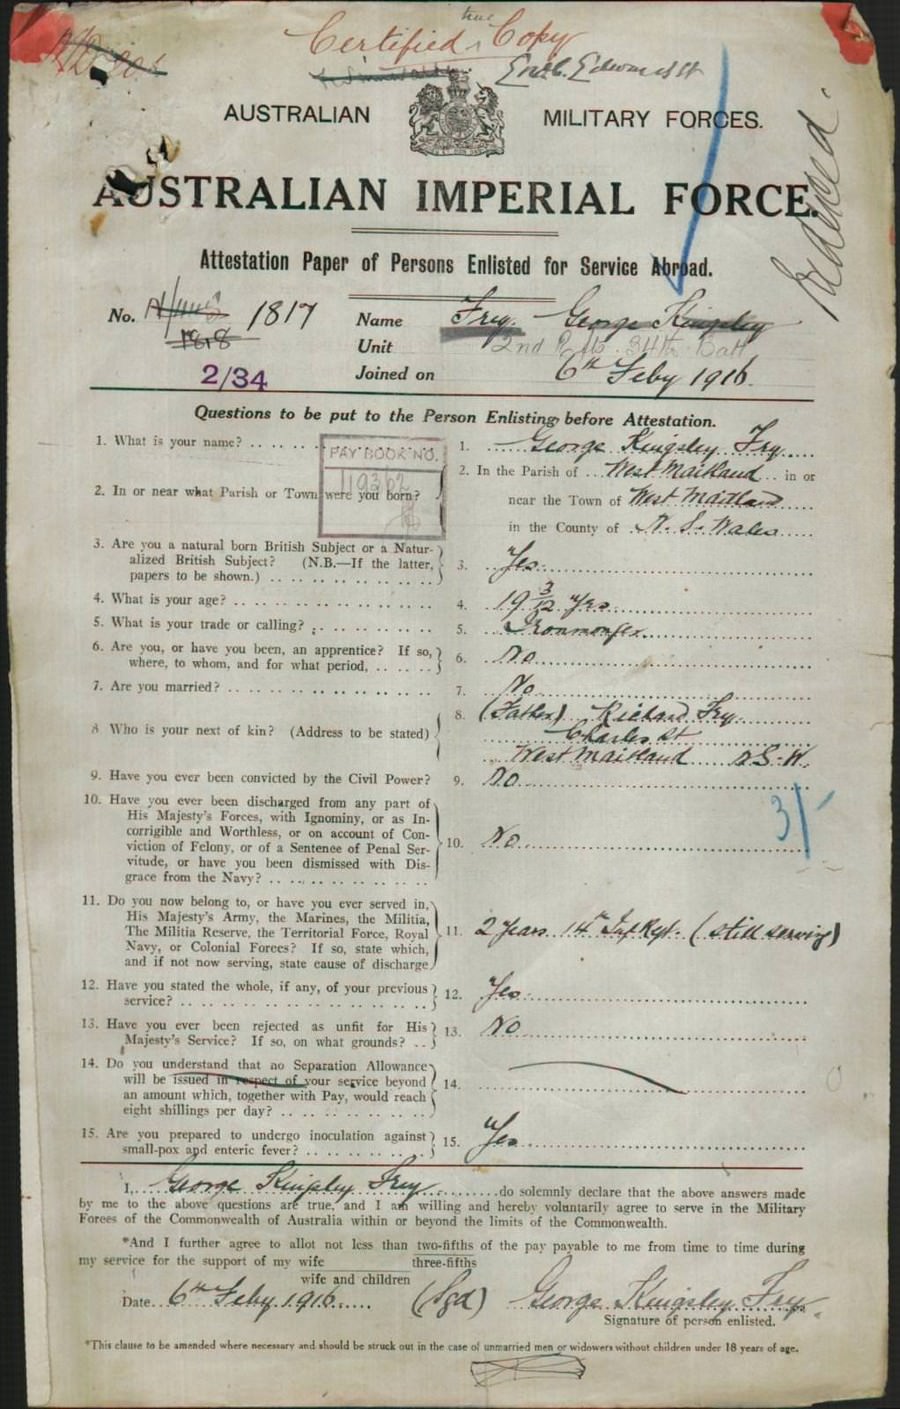 Certified true Copy
AUSTRALIAN MILITARY FORCES.
AUSTRALIAN IMPERIAL FORCE.
Attestation Paper of Persons Enlisted for Service Abroad.
No. 1818 1817 Name Fry. George Kingsley
Unit 2nd 34th Batt
2/34 Joined on 6th Feby 1916.
Questions to be put to the Person Enlisting before Attestation.
1. What is your name? 1. George Kingsley Fry
PAY BOOK NO.
19362
2. In or near what Parish or Town were you born? 2. In the Parish of West Maitland in or
near the Town of West Maitland
in the County of N. S. Wales
3. Are you a natural born British Subject or a Natur-
alized British Subject? (N.B.—If the latter,
papers to be shown.) 3. Yes
4. What is your age? 4. 19 3/12 Yrs
5. What is your trade or calling? 5. Ironmonger
6. Are you, or have you been, an apprentice? If so,
where, to whom, and for what period, 6. No
7. Are you married? 7. No
8 Who is your next of kin? (Address to be stated) 8. (Father) Richard Fry
Charles St
West Maitland N.S.W.
9. Have you ever been convicted by the Civil Power? 9. No
10. Have you ever been discharged from any part of
His Majesty's Forces, with Ignominy, or as In-
corrigible and Worthless, or on account of Con-
viction of Felony, or of a Sentence of Penal Ser-
vitude, or have you been dismissed with Dis-
grace from the Navy? 10. No
3/-
11. Do you now belong to, or have you ever served in,
His Majesty's Army, the Marines, the Militia,
The Militia Reserve, the Territorial Force, Royal
Navy, or Colonial Forces? If so, state which,
and if not now serving, state cause of discharge 11. 2 Years 14th Inf Rgt. (still serving)
12. Have you stated the whole, if any, of your previous
service? 12. Yes
13. Have you ever been rejected as unfit for His
Majesty's Service? If so, on what grounds? 13. No
14. Do you understand that no Separation Allowance
will be issued in respect of your service beyond
an amount which, together with Pay, would reach
eight shillings per day? 14.
15. Are you prepared to undergo inoculation against
small-pox and enteric fever? 15. Yes
I, George Kingsley Fry do solemnly declare that the above answers made
by me to the above questions are true, and I am willing and hereby voluntarily agree to serve in the Military
Forces of the Commonwealth of Australia within or beyond the limits of the Commonwealth.
*And I further agree to allot not less than two-fifths of the pay payable to me from time to time during
my service for the support of my wife three-fifths
wife and children
Date 6th Feby 1916 (Sgd) George Kingsley Fry
Signature of person enlisted.
*This clause to be amended where necessary and should be struck out in the case of unmarried men or widowers without children under 18 years of age.